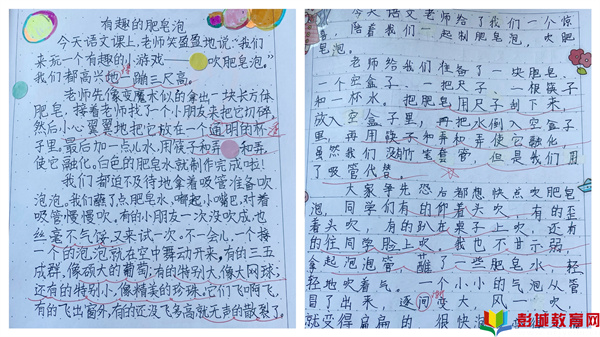 有趣的肥皂泡
今天语文课上,老师笑盈盈地说:“我们
来玩一个有趣的小游戏——吹肥皂泡。”
我们都高兴地一蹦三尺高。
老师先像变魔术似的拿出一块长方体
肥皂,接着老师找了个小朋友来把它切碎,
然后小心翼翼地把它放在一个透明的杯
子里,最后加一点儿水,用筷子和弄和弄,
使它融化。白色的肥皂水就制作完成啦!
我们都迫不及待地拿着吸管准备吹
泡泡。我们蘸了点肥皂水,嘟起小嘴巴,对着
吸管慢慢吹。有的小朋友一次没吹成也
丝毫不气馁,又来试一次。不一会儿,一个接
一个的泡泡就在空中舞动开来,有的三五
成群,像硕大的葡萄,有的特别大像大网球,
还有的特别小,像精美的珍珠。它们飞啊飞,
有的飞出窗外,有的还没飞多高就无声的散裂了。
今天语文老师给了我们一个惊
喜,陪着我们一起制肥皂泡,吹肥
皂泡。
老师给我们准备了一块肥皂,
一个空盒子、一把尺子、一根筷子
和一杯水。把肥皂用尺子刮下来,
放入空盒子里,再把水倒入空盒子
里,再用筷子和弄和弄使它融化,
虽然我们没竹笔套管,但是我们用
了吸管代替。
大家争先恐后都想快点吹肥皂
泡,同学们有的仰着头吹,有的歪
着头吹,有的趴在桌子上吹,还有
的往同学脸上吹。我也不甘示弱,
拿起泡泡管,蘸了一些肥皂水,轻
轻地吹着气。一个小小的气泡从管
冒了出来,逐间变大,风一吹,
就变得扁扁的,很快
彭城教育网